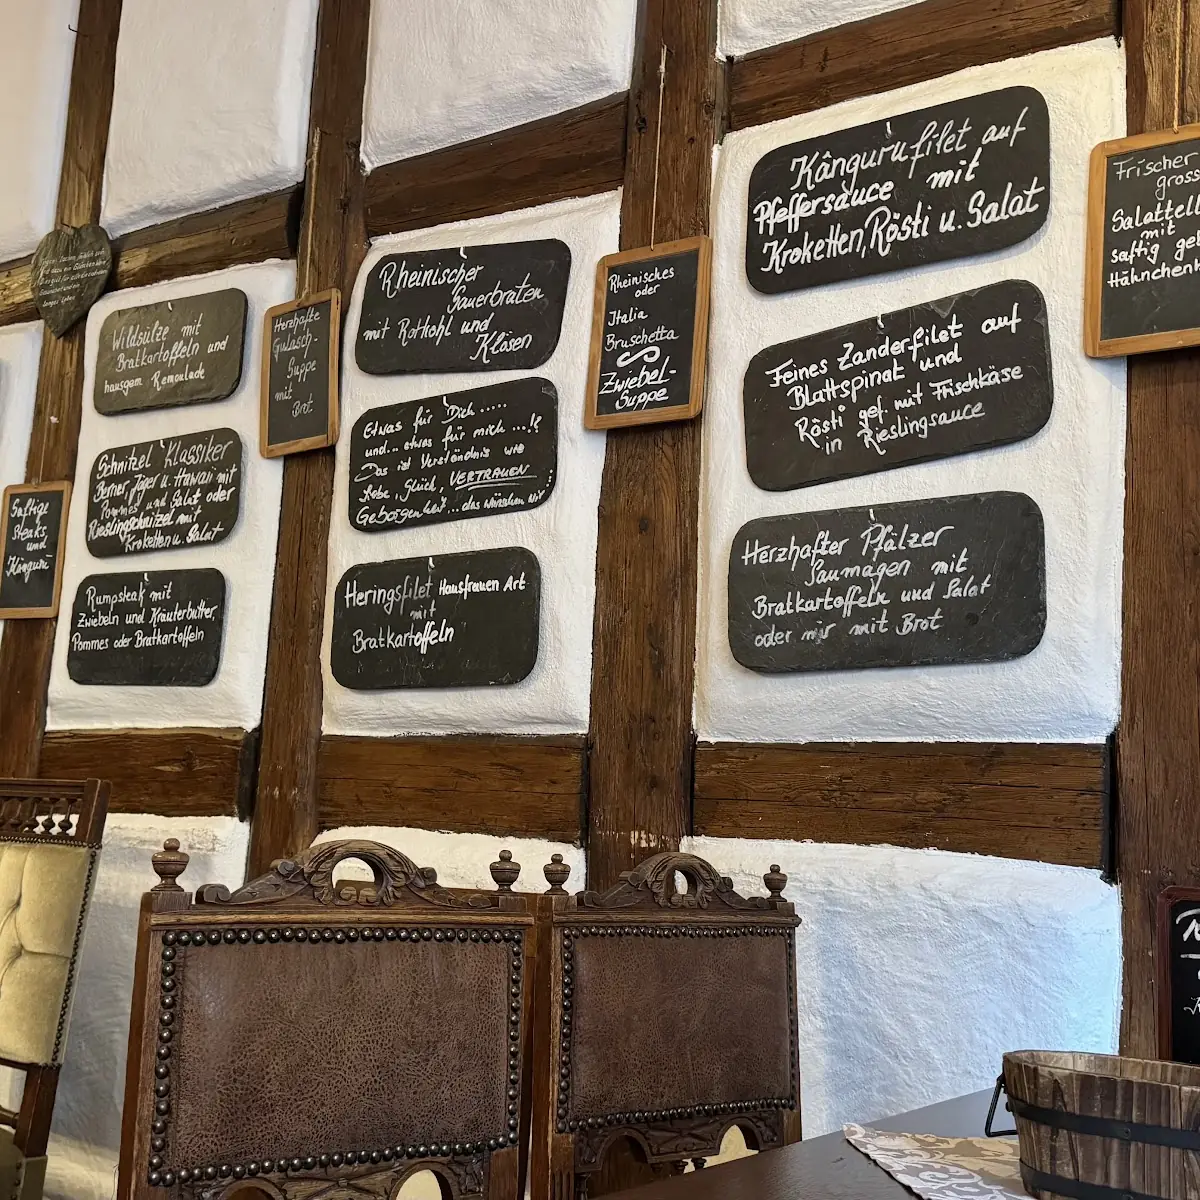 Wildsülze mit
Bratkartoffeln und
hausgem Remoulade
Schnitzel Klassiker
Berner, Jäger u. Hawaii mit
Pommes und Salat oder
Rieslingschnitzel mit
Kroketten u. Salat
Rumpsteak mit
Zwiebeln und Kräuterbutter,
Pommes oder Bratkartoffeln
Saftige
Steaks
und
Känguru
Herzhafte
Gulasch-
Suppe
mit
Brot
Rheinischer
Sauerbraten
mit Rotkohl und
Klösen
Etwas für Dich.....
und... etwas für mich...!?
Das ist Verständnis wie
Liebe, Glück, VERTRAUEN
Geborgenheit...das wünschen wir
Heringsfilet Hausfrauen Art
mit
Bratkartoffeln
Rheinisches
oder
Italia
Bruschetta
Zwiebel-
Suppe
Känguru filet auf
Pfeffersauce mit
Kroketten, Rösti u. Salat
Feines Zanderfilet auf
Blattspinat und
Rösti gef. mit Frischkäse
in Rieslingsauce
Herzhafter Pfälzer
Saumagen mit
Bratkartoffeln und Salat
oder nur mit Brot
Frischer
gross
Salattell
mit
saftig geb
Hähnchenb